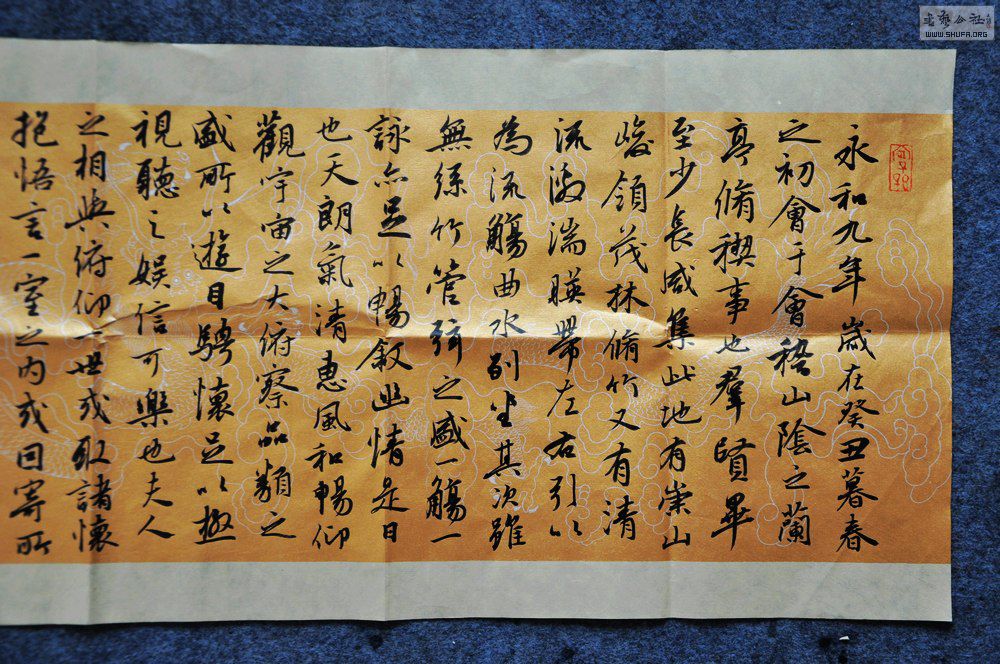 永和九年歲在癸丑暮春
之初會于會稽山陰之蘭
亭脩稧事也羣賢畢
至少長咸集此地有崇山
峻領茂林脩竹又有清
流激湍暎帶左右引以
為流觴曲水列坐其次雖
無絲竹管弦之盛一觴一
詠亦足以暢敘幽情是日
也天朗氣清惠風和暢仰
觀宇宙之大俯察品類之
盛所以遊目騁懷足以極
視聽之娛信可樂也夫人
之相與俯仰一世或取諸懷
抱悟言一室之内或因寄所
書藝公社
WWW.SHUFA.ORG